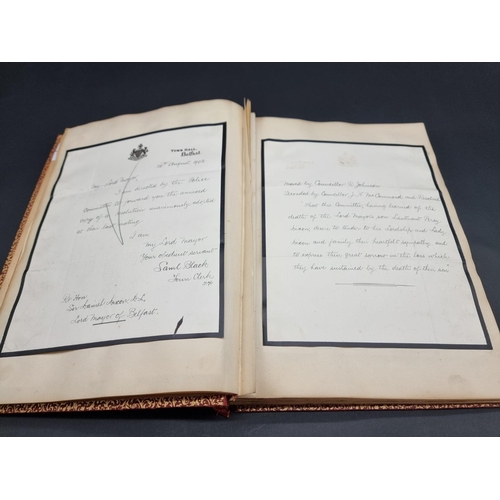 TOWN HALL,
Belfast.
August
My Lord Mayor,
I am directed by the Police
Committee to forward you the annexed
copy of a resolution unanimously adopted
at their last meeting.
I am
My Lord Mayor
Your obedient servant
Saml Black
Town Clerk
Sir Daniel Dixon
Lord Mayor of Belfast.
moved by Councillor Johnson
seconded by Councillor and
That this Committee having learned of the
death of the Lord Mayor's son Lieutenant Percy
Dixon, desire to tender to his Lordship and Lady
Dixon and family their heartfelt sympathy and
to express their great sorrow in the loss which
they have sustained by the death of their son